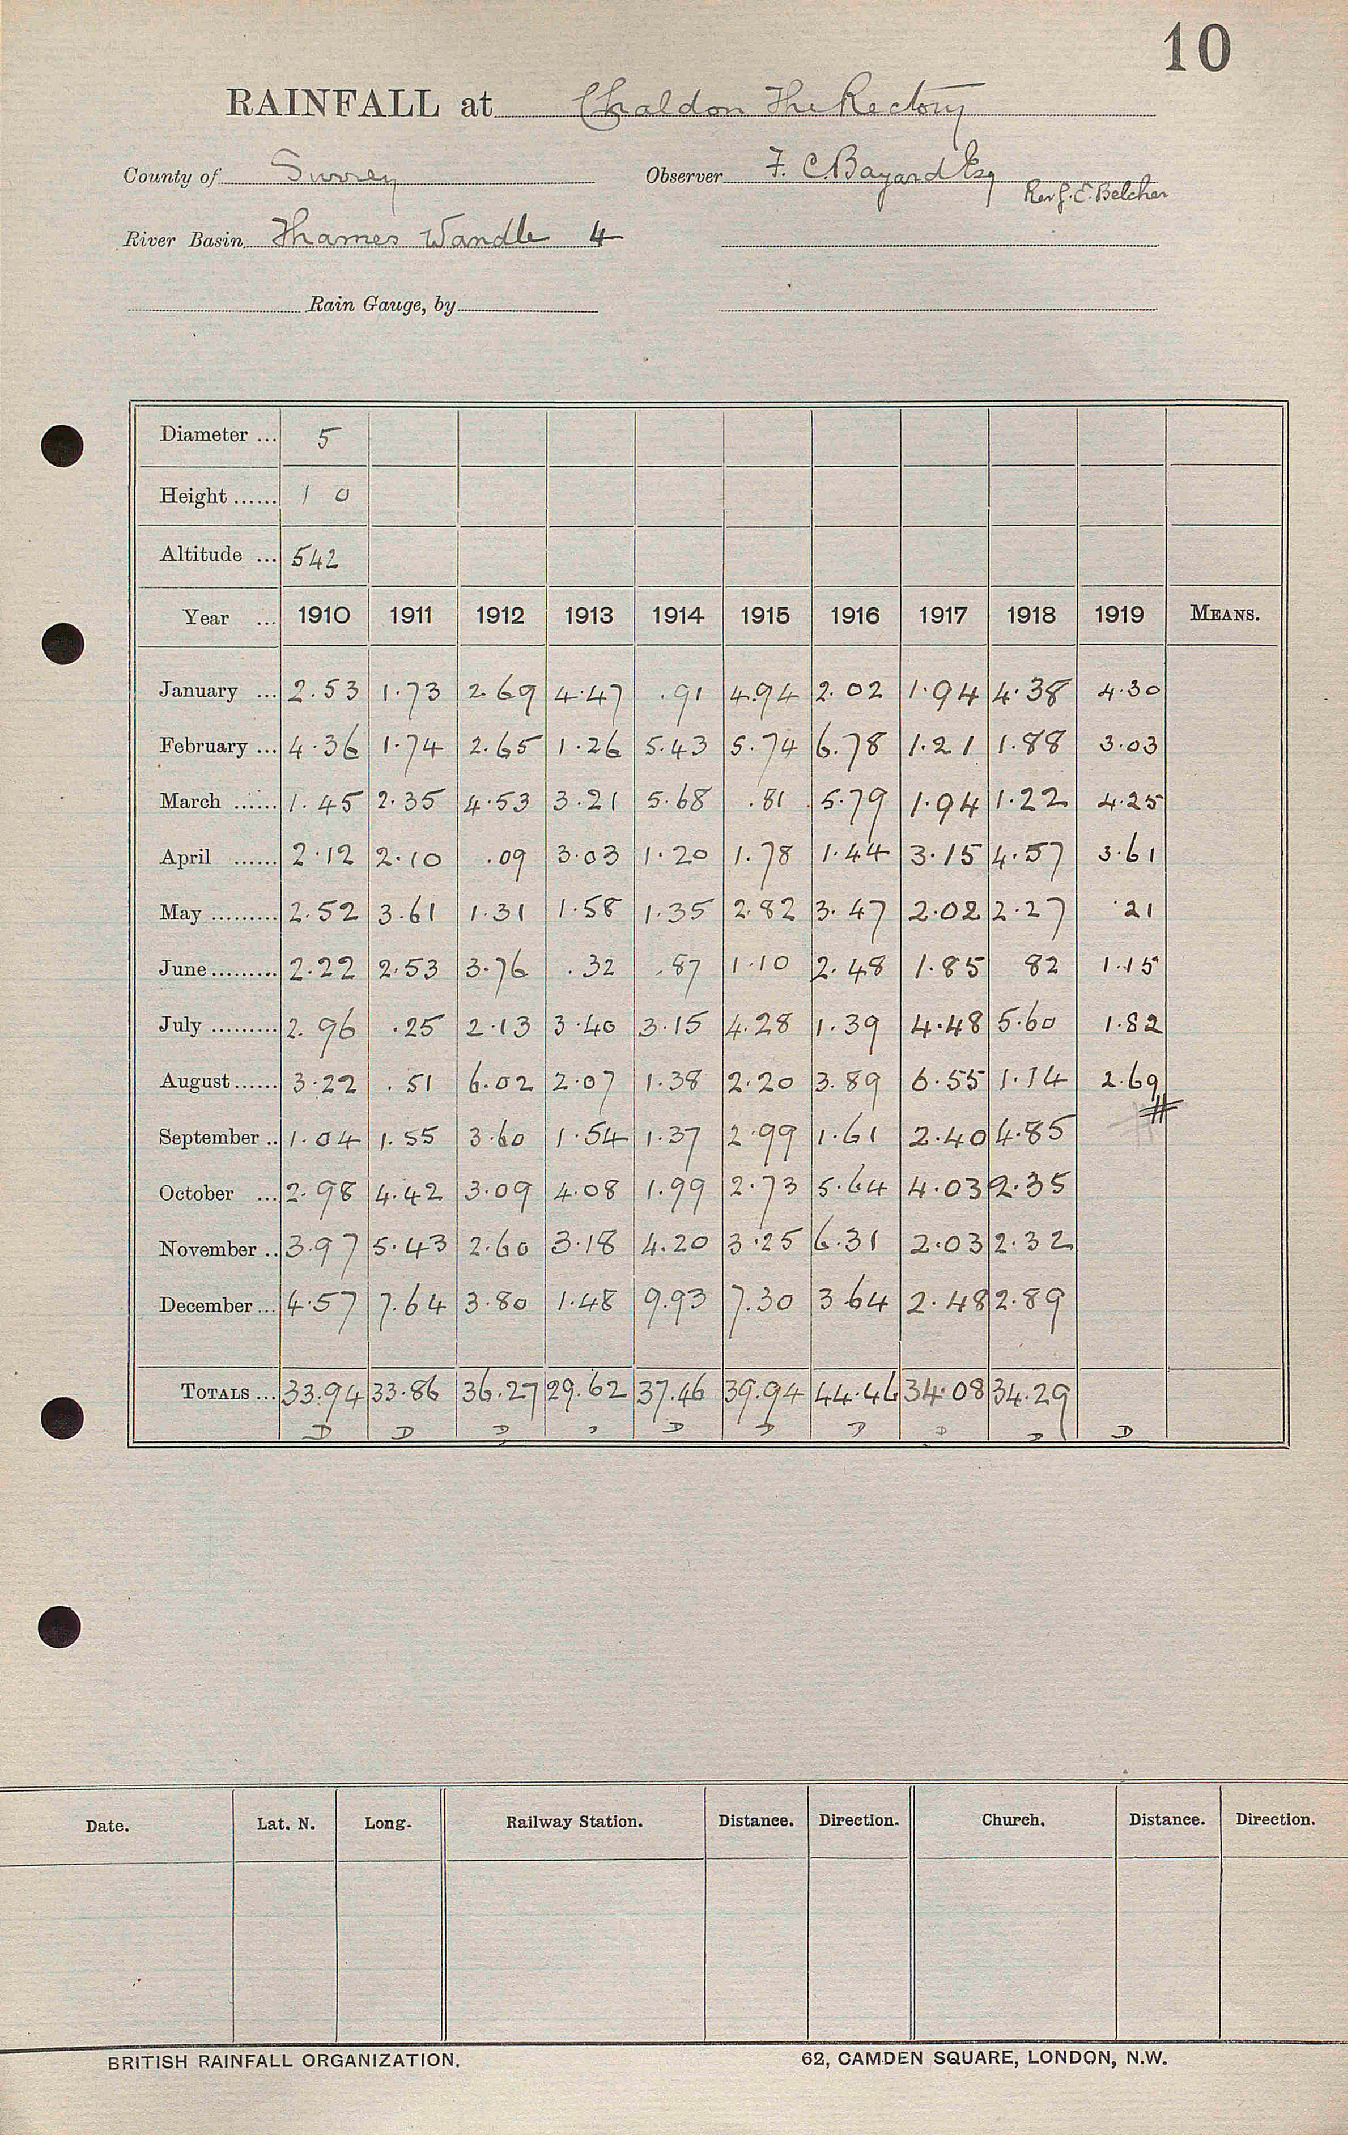 10
RAINFALL at Chaldon The Rectory
County of Surrey Observer F. C Bayard Esq
Rev G. E. Belcher
River Basin Thames Wandle 4
Rain Gauge, by
Diameter ... 5
Height ...... 1 0
Altitude ... 542
Year ... 1910 1911 1912 1913 1914 1915 1916 1917 1918 1919 MEANS.
January ... 2.53 1.73 2.69 4.47 .91 4.94 2.02 1.94 4.38 4.30
February ... 4.36 1.74 2.65 1.26 5.43 5.74 6.78 1.21 1.88 3.03
March ...... 1.45 2.35 4.53 3.21 5.68 .81 5.79 1.94 1.22 4.25
April ...... 2.12 2.10 .09 3.03 1.20 1.78 1.44 3.15 4.57 3.61
May ......... 2.52 3.61 1.31 1.58 1.35 2.82 3.47 2.02 2.27 .21
June ......... 2.22 2.53 3.76 .32 .87 1.10 2.48 1.85 82 1.15
July ......... 2.96 .25 2.13 3.40 3.15 4.28 1.39 4.48 5.60 1.82
August ...... 3.22 .51 6.02 2.07 1.38 2.20 3.89 6.55 1.14 2.69
September .. 1.04 1.55 3.60 1.54 1.37 2.99 1.61 2.40 4.85
October ... 2.98 4.42 3.09 4.08 1.99 2.73 5.64 4.03 2.35
November .. 3.97 5.43 2.60 3.18 4.20 3.25 6.31 2.03 2.32
December ... 4.57 7.64 3.80 1.48 9.93 7.30 3 64 2.48 2.89
TOTALS ... 33.94 33.86 36.27 29.62 37.46 39.94 44.46 34.08 34.29
D D D D D D D D D D
Date. Lat. N. Long. Railway Station. Distance. Direction. Church. Distance. Direction.
BRITISH RAINFALL ORGANIZATION. 62, CAMDEN SQUARE, LONDON, N.W.